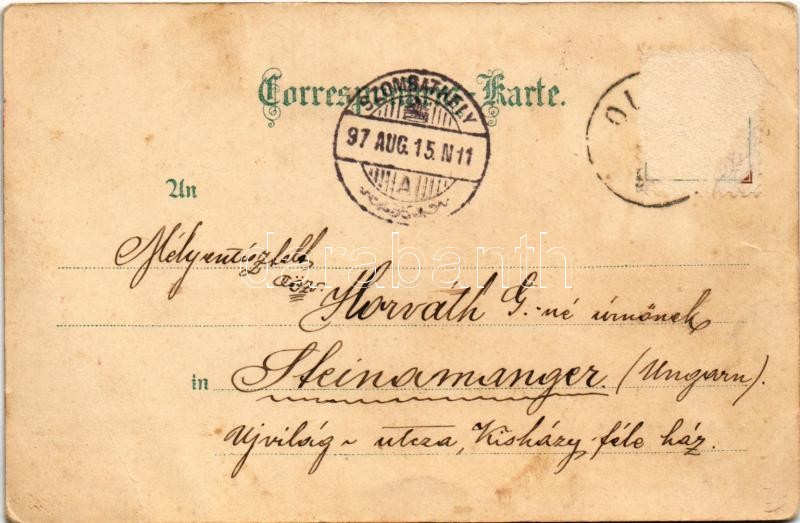 Correspondenz-Karte.
SZOMBATHELY
97 AUG. 15. N 11
A
An
Mélyentisztelt
özv. Horváth G.-né úrnőnek
in Steinamanger. (Ungarn).
Ujvilág-utcza, Kisházy-féle ház.
darabanth